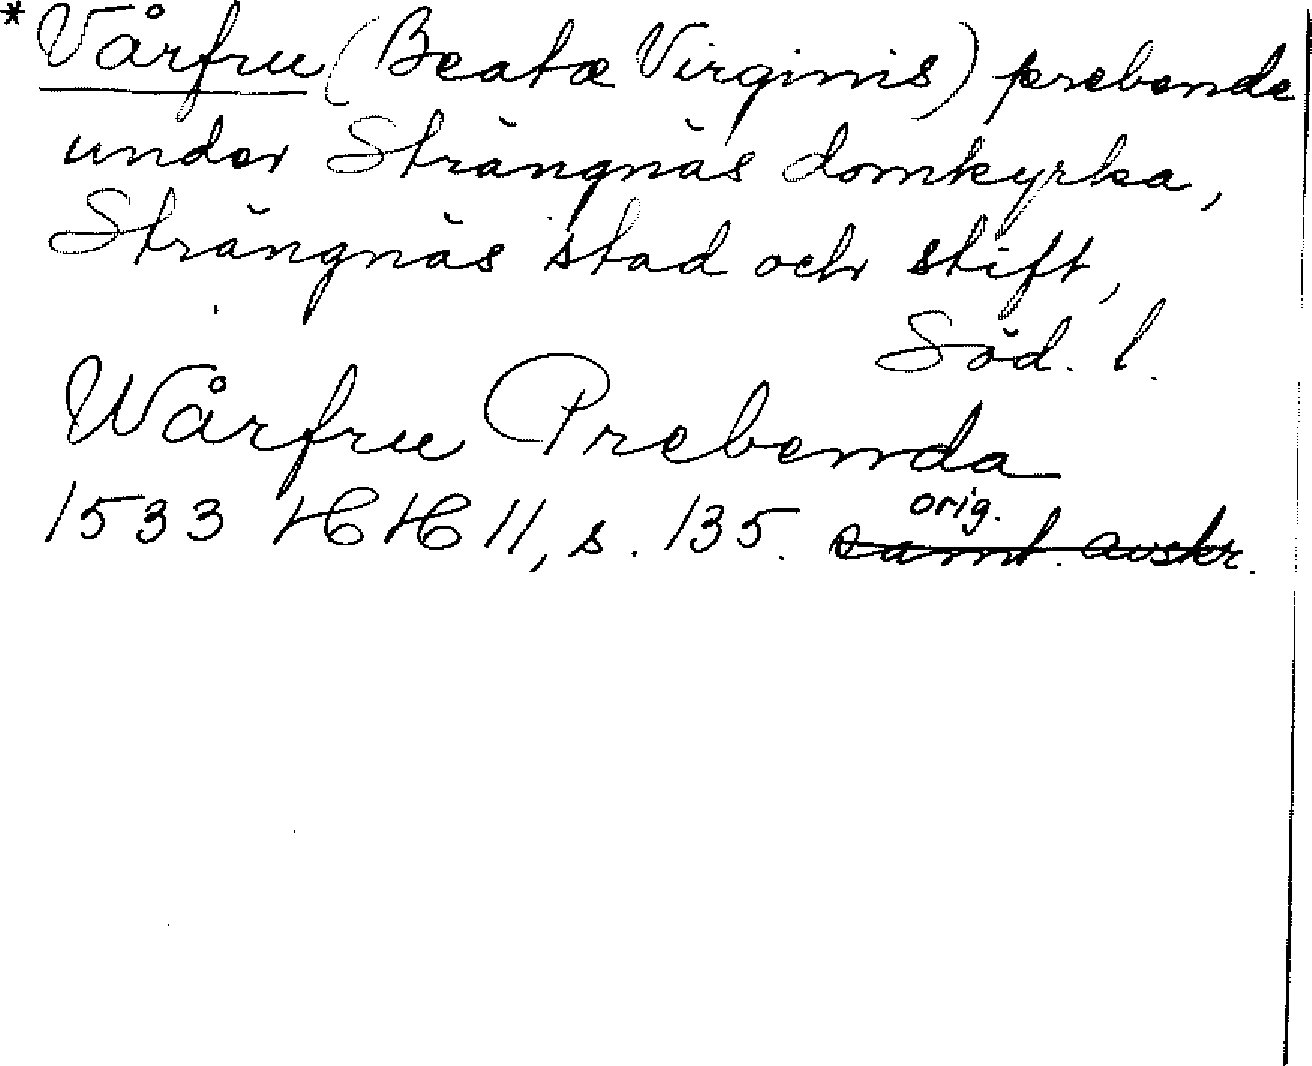 *Vårfru (Beatæ Virginis) prebende
under Strängnäs domkyrka,
Strängnäs stad och stift,
Söd. l.
Wårfru Prebenda
orig.
1533 HH 11, s. 135. samt. avskr.